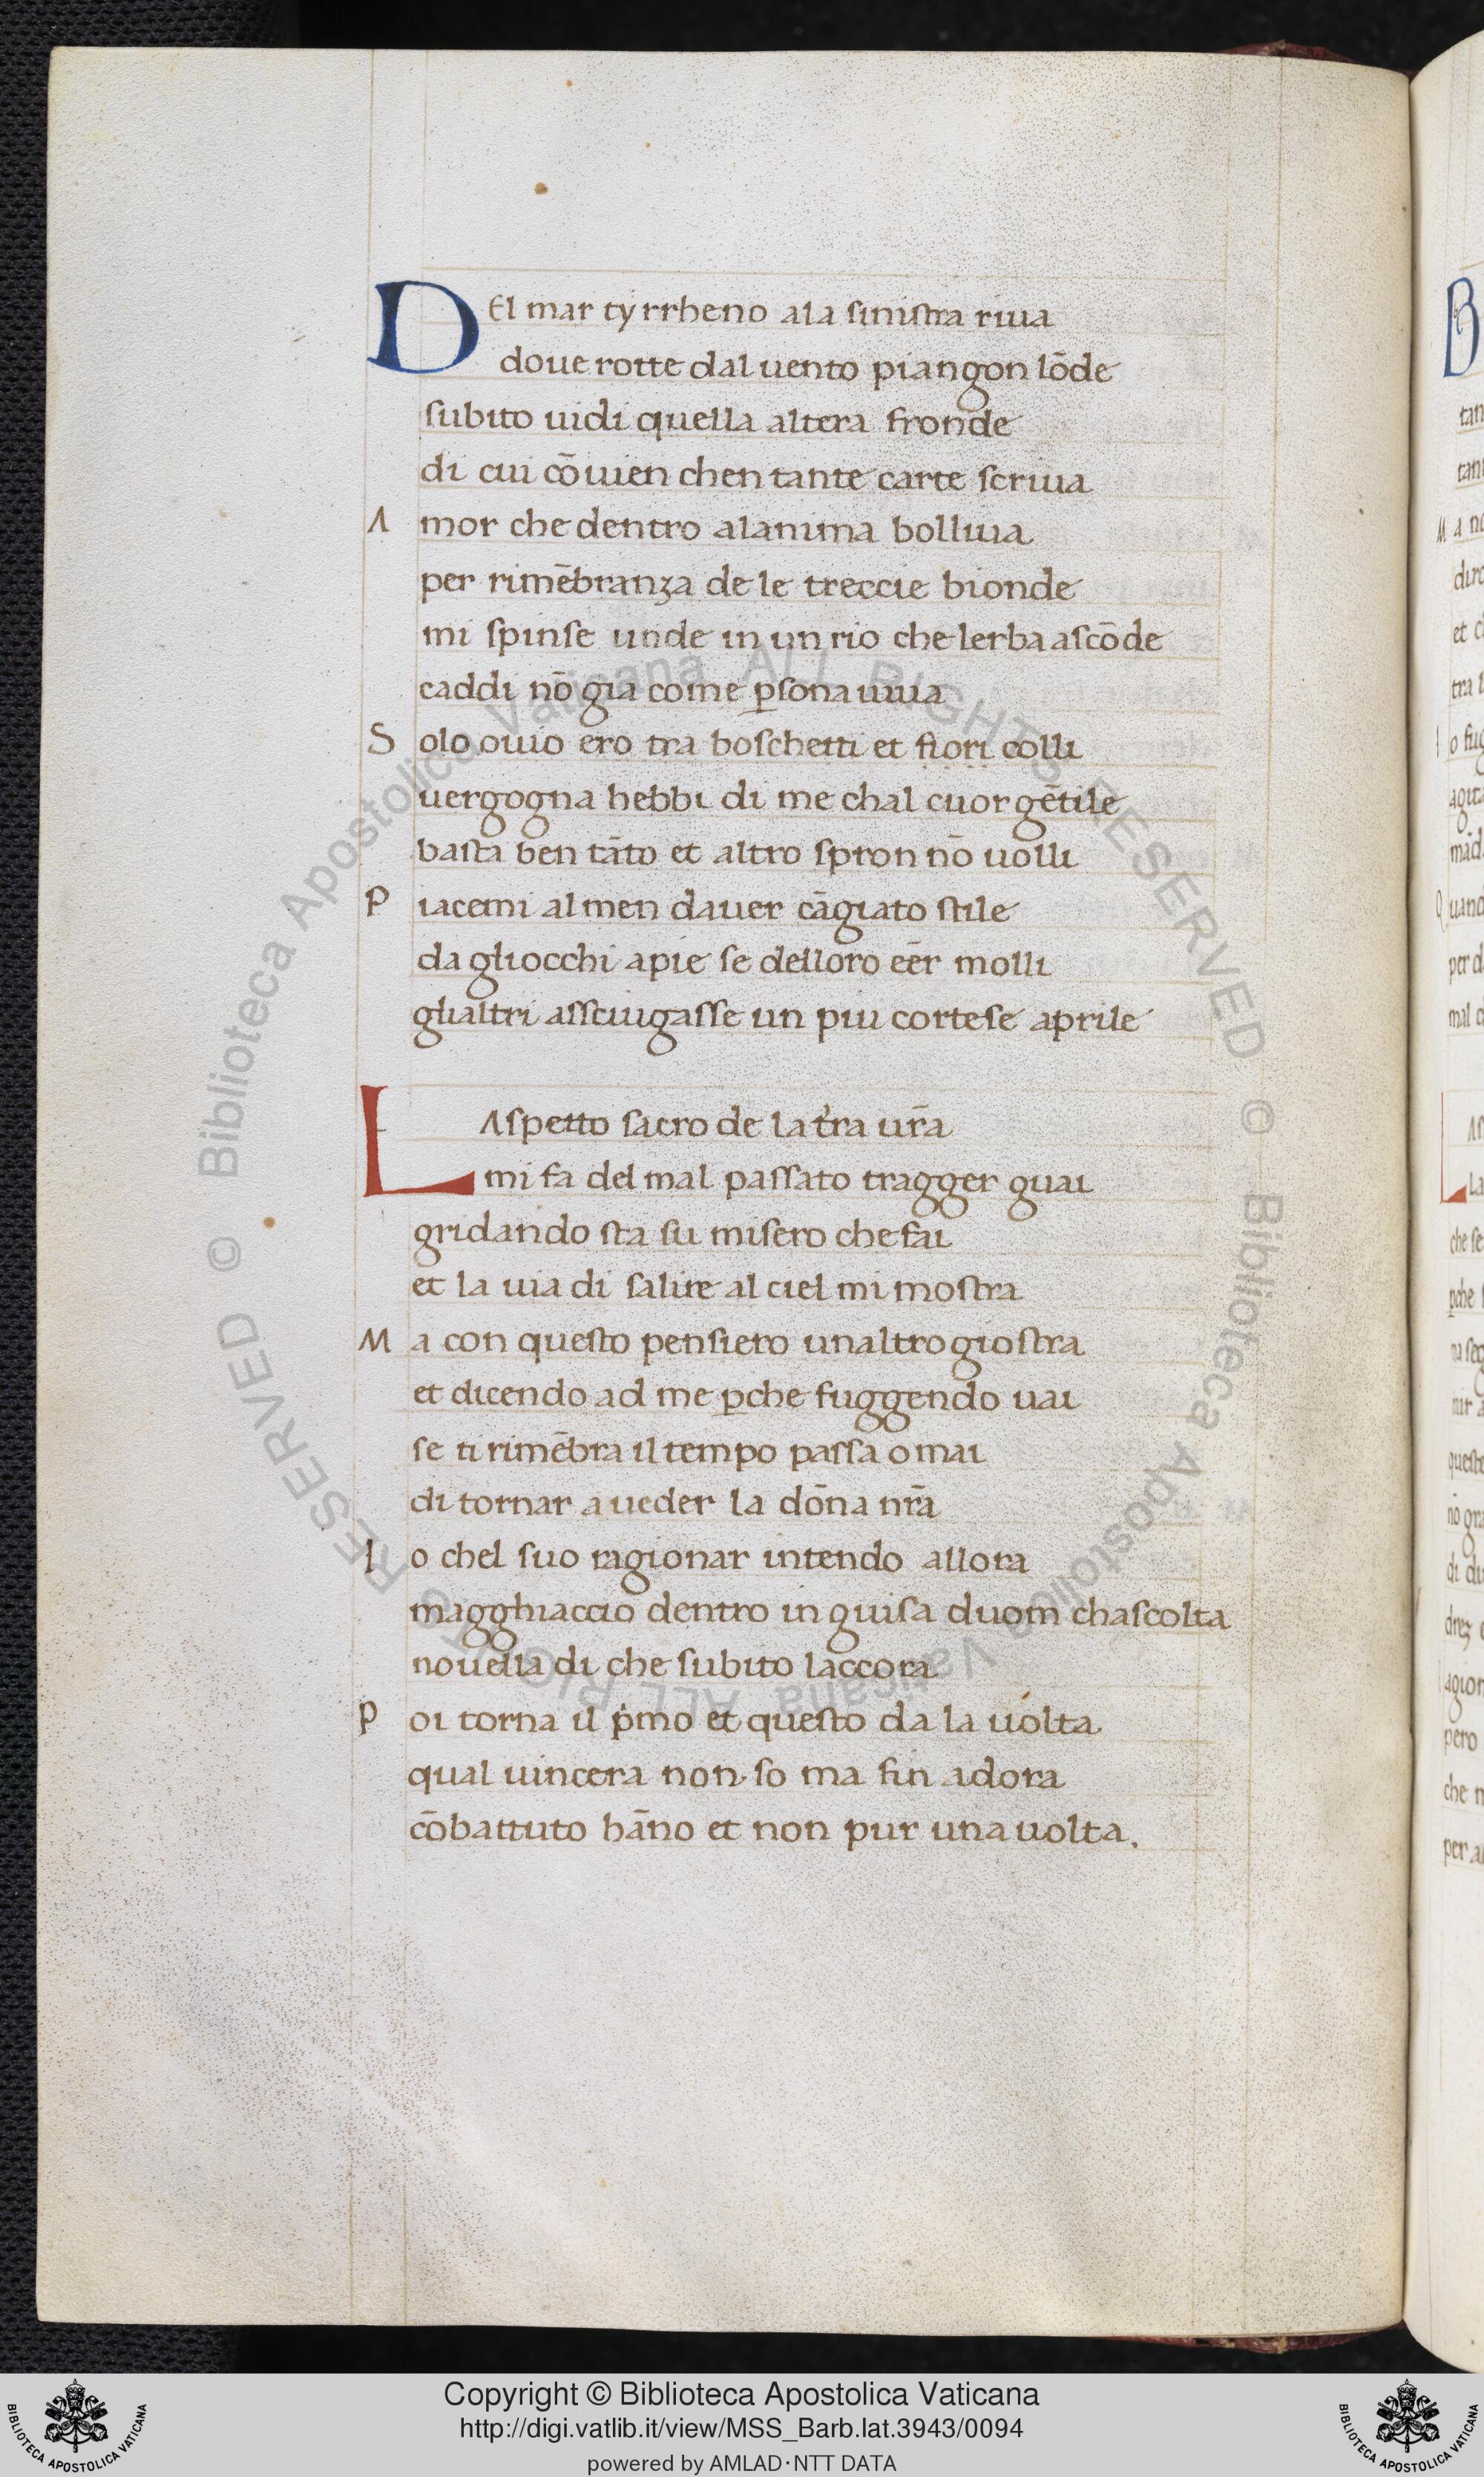 DEl mar tyrrheno ala sinistra riua
doue rotte dal uento piangon lōde
subito uidi quella altera fronde
di cui cōuien chen tante carte scriua
Amor che dentro alanima bolliuia
per rimēbranza de le treccie bionde
mi spinse unde in un rio che lerba ascōde
caddi nō gia come ꝑsona uiua
Solo ouio ero tra boschetti et fiori colli
uergogna hebbi di me chal cuor gētile
basta ben tāto et altro spron nō uolli
Piacemi almen dauer cāgiato stile
da gliocchi apie se delloro eēr molli
glialtri assciugasse un piu cortese aprile
LAspetto sacro de la tr̄a ur̄a
mi fa del mal passato tragger guai
gridando sta su misero che fai
et la uia di salire al ciel mi mostra
Ma con questo pensiero unaltro giostra
et dicendo ad me ꝑche fuggendo uai
se ti rimēbra il tempo passa omai
di tornar a ueder la dōna nr̄a
Io chel suo ragionar intendo allora
magghiaccio dentro in guisa duom chascolta
nouella di che subito laccora
Poi torna il pͥmo et questo da la uolta
qual uincera non so ma fin adora
cōbattuto hāno et non pur una uolta.
Copyright © Biblioteca Apostolica Vaticana
http://digi.vatlib.it/view/MSS_Barb.lat.3943/0094
powered by AMLAD·NTT DATA